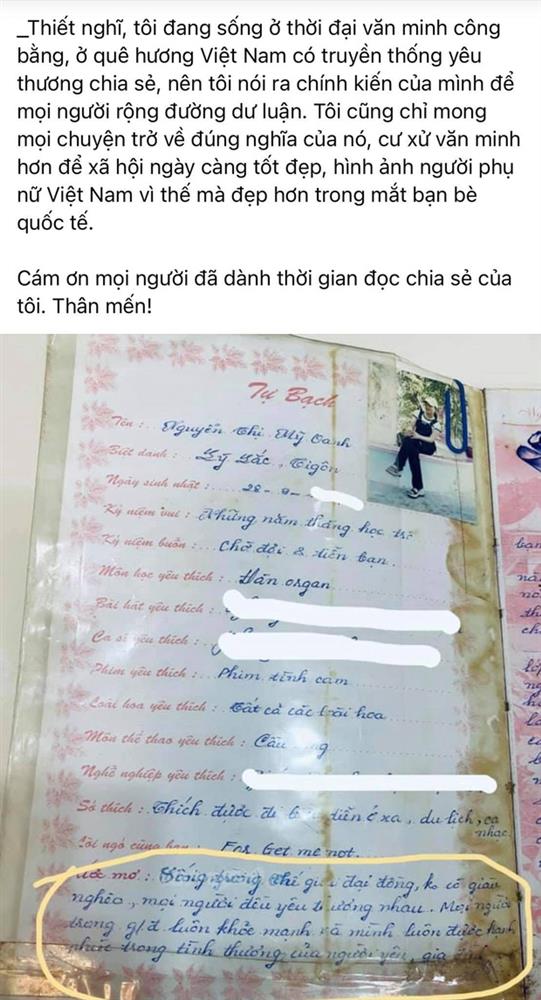 _Thiết nghĩ, tôi đang sống ở thời đại văn minh công
bằng, ở quê hương Việt Nam có truyền thống yêu
thương chia sẻ, nên tôi nói ra chính kiến của mình để
mọi người rộng đường dư luận. Tôi cũng chỉ mong
mọi chuyện trở về đúng nghĩa của nó, cư xử văn minh
hơn để xã hội ngày càng tốt đẹp, hình ảnh người phụ
nữ Việt Nam vì thế mà đẹp hơn trong mắt bạn bè
quốc tế.
Cám ơn mọi người đã dành thời gian đọc chia sẻ của
tôi. Thân mến!
Tự Bạch
Tên : Nguyễn Thị Mỹ Oanh
Biệt danh : Lắc , Tigôn
Ngày sinh nhật : 28 - 8 -
Kỷ niệm vui : Những năm tháng học trò
Kỷ niệm buồn : Chờ đợi & tiễn bạn .
Môn học yêu thích : Đàn organ
Bài hát yêu thích :
Ca sĩ yêu thích :
Phim yêu thích : Phim tình cảm
Loài hoa yêu thích : Tất cả các loài hoa
Môn thể thao yêu thích : Cầu
Nghề nghiệp yêu thích :
Sở thích : Thích được đi diễn ở xa , du lịch , ca
nhạc
Lời ngỏ cùng bạn : For Get me not .
Ước mơ : Sống trong thế giới đại đồng, ko có giàu
nghèo , mọi người đều yêu thương nhau . Mọi người
trong g/đ luôn khỏe mạnh và mình luôn được hạnh
phúc trong tình thương của người yêu , gia